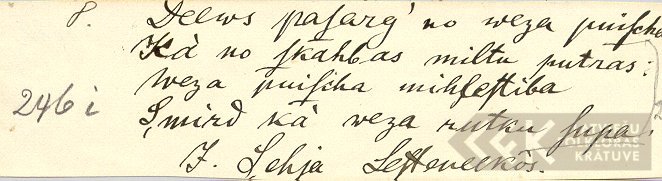 8. Deews pasarg' no weza puischa
Kà no skahbas miltu putras:
Weza puischa mihlestiba
246 i
Smird kà weza rutku supa.
LATVIEŠU
FOLKLORAS
KRĀTUVE
J. Lehja